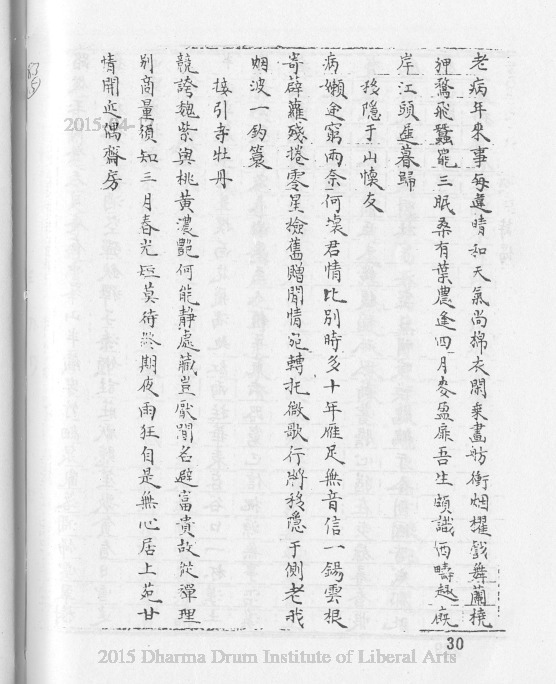 老病年來事每違晴和天氣尚棉衣閑乘畫舫衝烟櫂戲舞蘭橈
狎鶩飛蠶罷三眠桑有葉農逢四月麥盈扉吾生頗識西疇趣
岸江頭薄暮歸
移隱于山懷友
病嬾途窮兩奈何簑君情比別時多十年雁足無音信一錫雲根
寄薜蘿殘捲零星檢舊贈閒情宛轉托微歌行將移隱于側老我
烟波一釣簑
接引寺牡丹
競誇魏紫與桃黃濃艷何能靜處藏豈厭聞名避富貴故從禪理
別商量須知三月春光短莫待終期夜雨狂自是無心居上苑甘
情開近偶齋房
30
2015-04-1
2015 Dharma Drum Institute of Liberal Arts